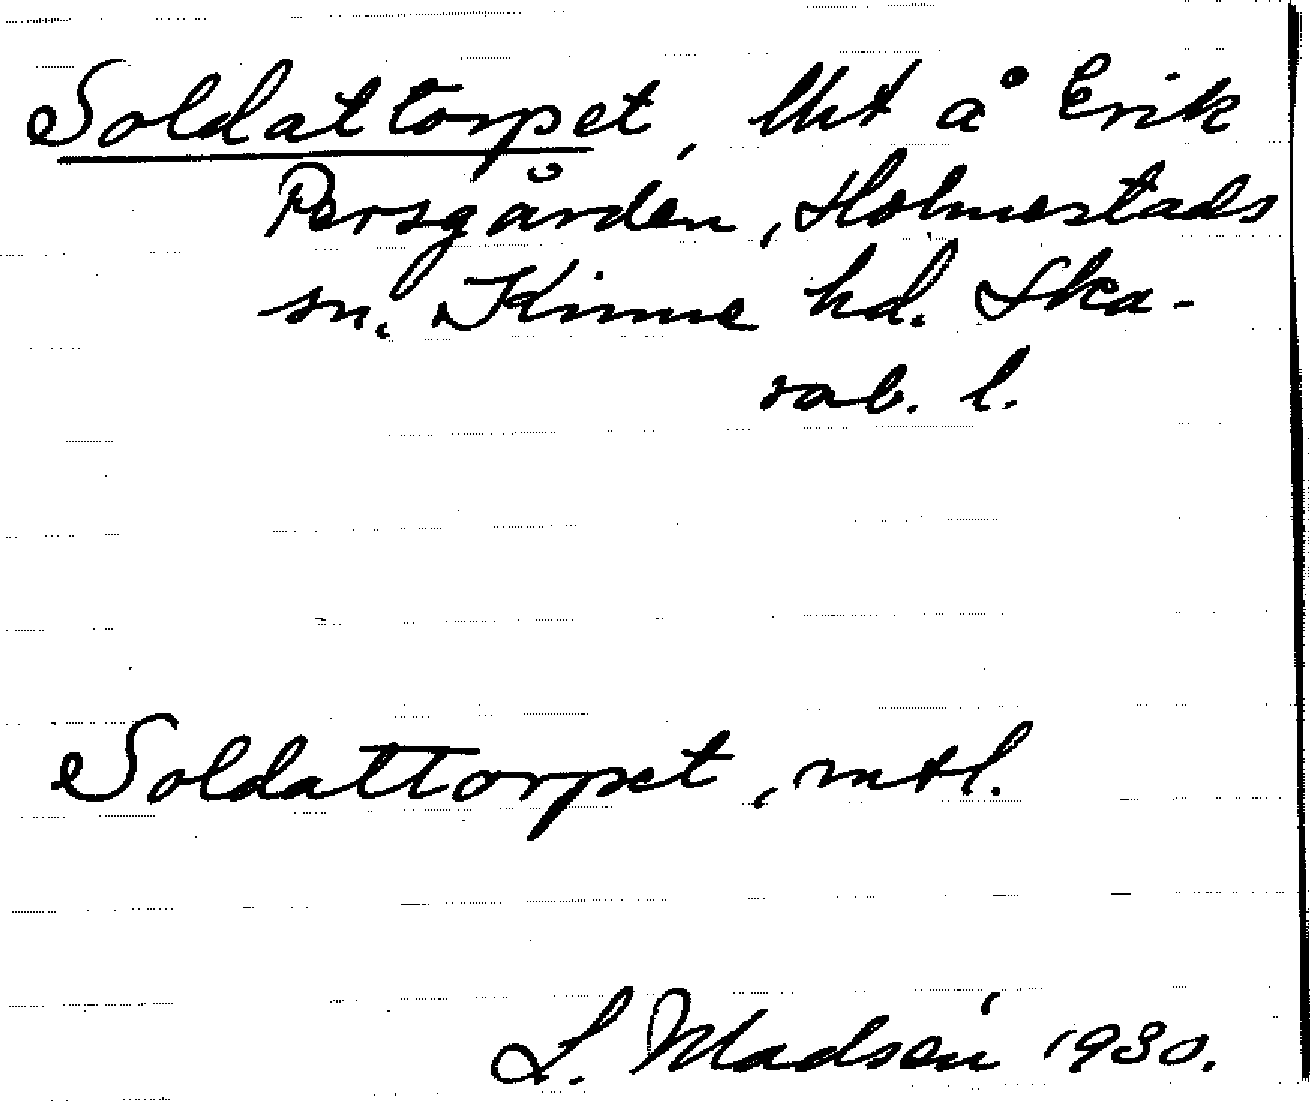 Soldattorpet, lht å Erik
Persgården, Holmestads
sn. Kinne hd. Ska-
rab. l.
Soldattorpet, mtl.
L. Madsén 1930.